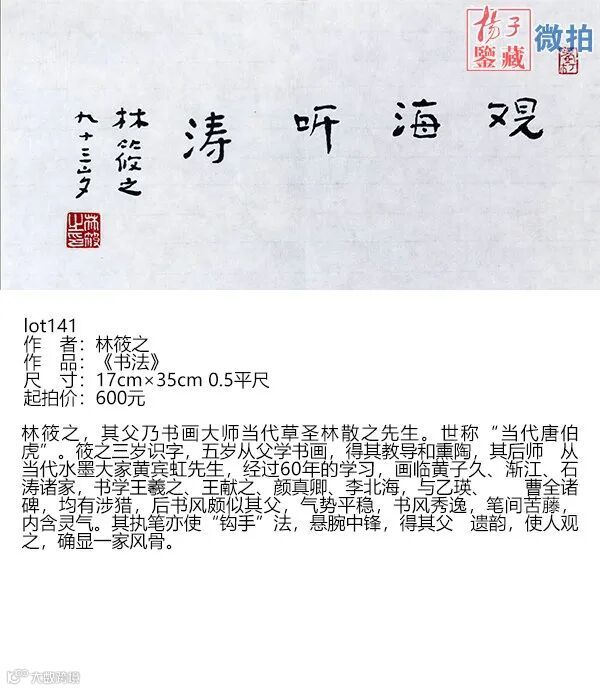 扬子
鉴藏
微拍
观海听涛
林筱之
九十三岁
林筱
之印
lot141
作　者：林筱之
作　品：《书法》
尺　寸：17cm×35cm 0.5平尺
起拍价：600元
林筱之，其父乃书画大师当代草圣林散之先生。世称“当代唐伯
虎”。筱之三岁识字，五岁从父学书画，得其教导和熏陶，其后师　从
当代水墨大家黄宾虹先生，经过60年的学习，画临黄子久、渐江、石
涛诸家，书学王羲之、王献之、颜真卿、李北海，与乙瑛、　　曹全诸
碑，均有涉猎，后书风颇似其父，气势平稳，书风秀逸，笔间苦藤，
内含灵气。其执笔亦使“钩手”法，悬腕中锋，得其父　遗韵，使人观
之，确显一家风骨。